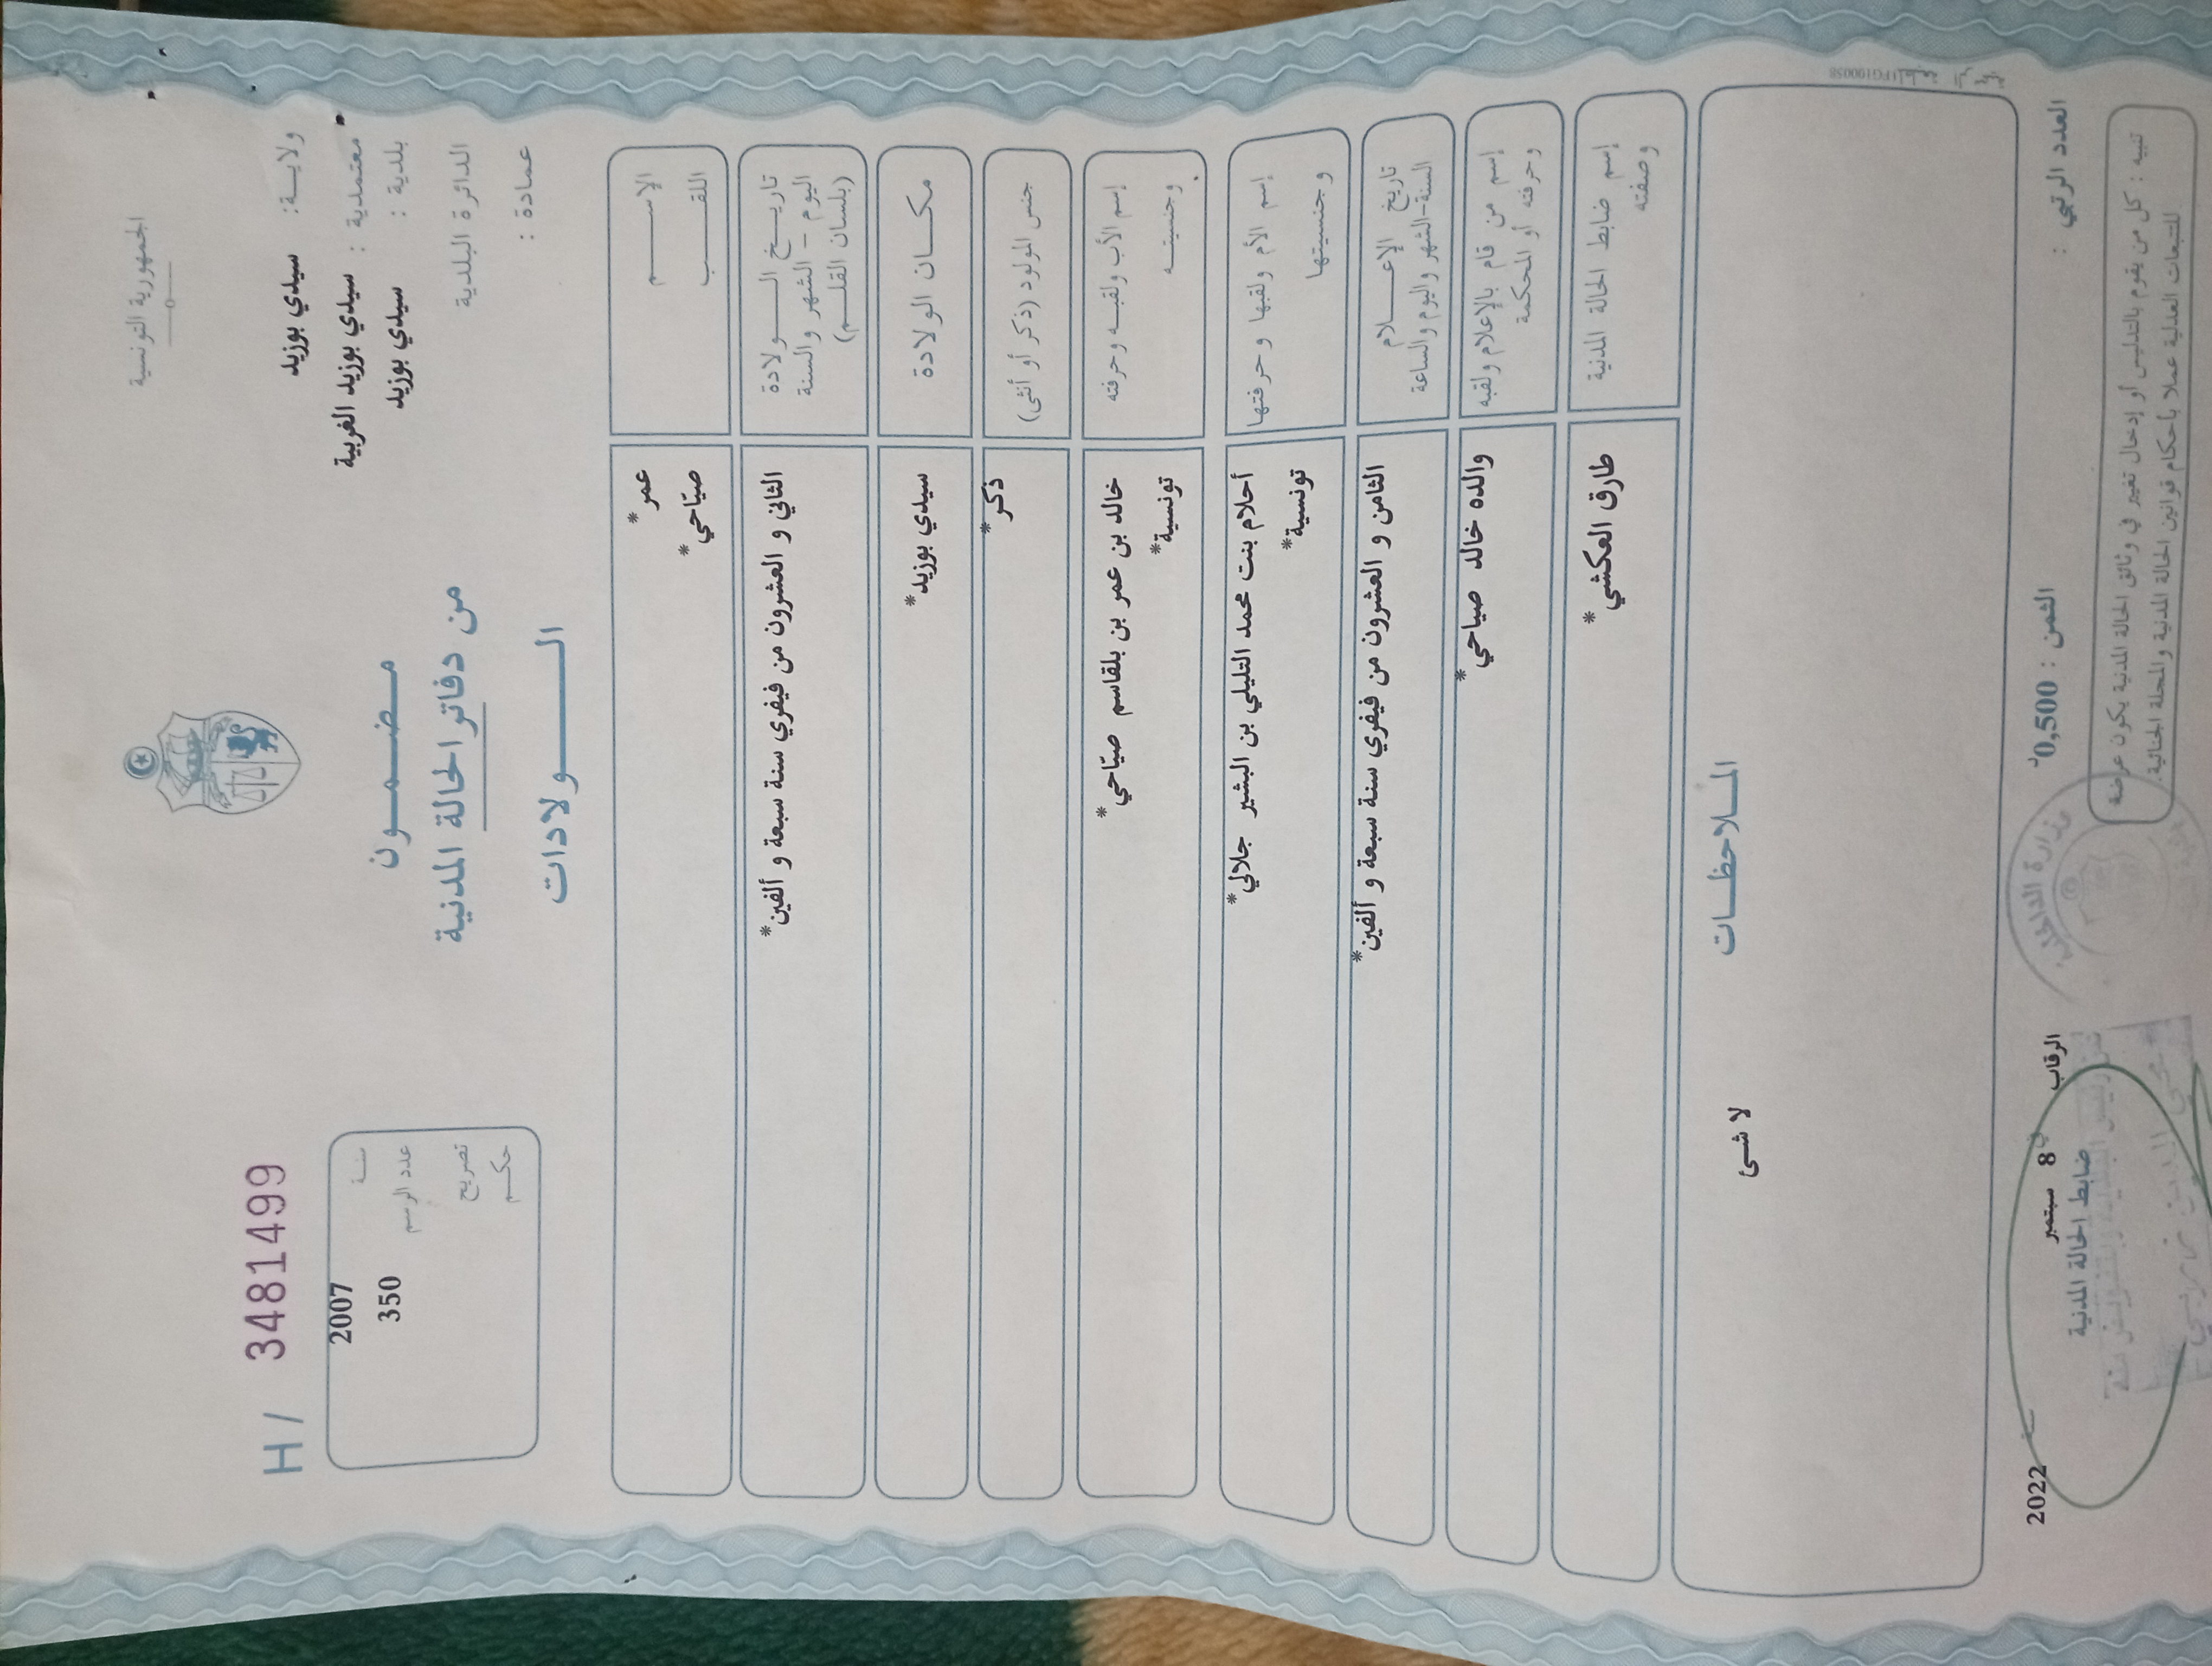 الجمهورية التونسية
ولايـــة: سيدي بوزيد
معتمدية : سيدي بوزيد الغربية
بلدية : سيدي بوزيد
الدائرة البلدية
عمادة :
مـضـمــون
من دفاتر الحالة المدنية
الـــولادات
H/ 3481499
سنــة 2007
عدد الرسم 350
تصريح
حكــم
الإســـــم عمر*
اللقـــــب صيّاحي*
تاريــخ الـــــولادة
اليوم - الشهر والسنة
(بلسان القلـــم)
الثاني و العشرون من فيفري سنة سبعة و ألفين*
مكـــان الولادة سيدي بوزيد*
جنس المولود (ذكر أو أنثى) ذكر*
إسم الأب ولقبـه وحرفته خالد بن عمر بن بلقاسم صيّاحي*
وجنسيتــه تونسية*
إسم الأم ولقبها وحرفتها أحلام بنت محمد التليلي بن البشير جلالي*
وجنسيتها تونسية*
تاريخ الإعـــــلام
السنة-الشهر واليوم والساعة
الثامن و العشرون من فيفري سنة سبعة و ألفين*
إسم من قام بالإعلام ولقبه
وحرفته أو المحكمة
والده خالد صياحي*
إسم ضابط الحالة المدنية
وصفته
طارق العكشي*
المــلاحظــات
لا شىء
العدد الرتبي :
الثمن : 0,500د
الرقاب في 8 سبتمبر 2022
ضابط الحالة المدنية
تنبيه : كل من يقوم بالتدليس أو إدخال تغيير في وثائق الحالة المدنية يكون عرضة
للتتبعات العدلية عملا بأحكام قوانين الحالة المدنية والمجلة الجنائية.
وزارة الداخلية